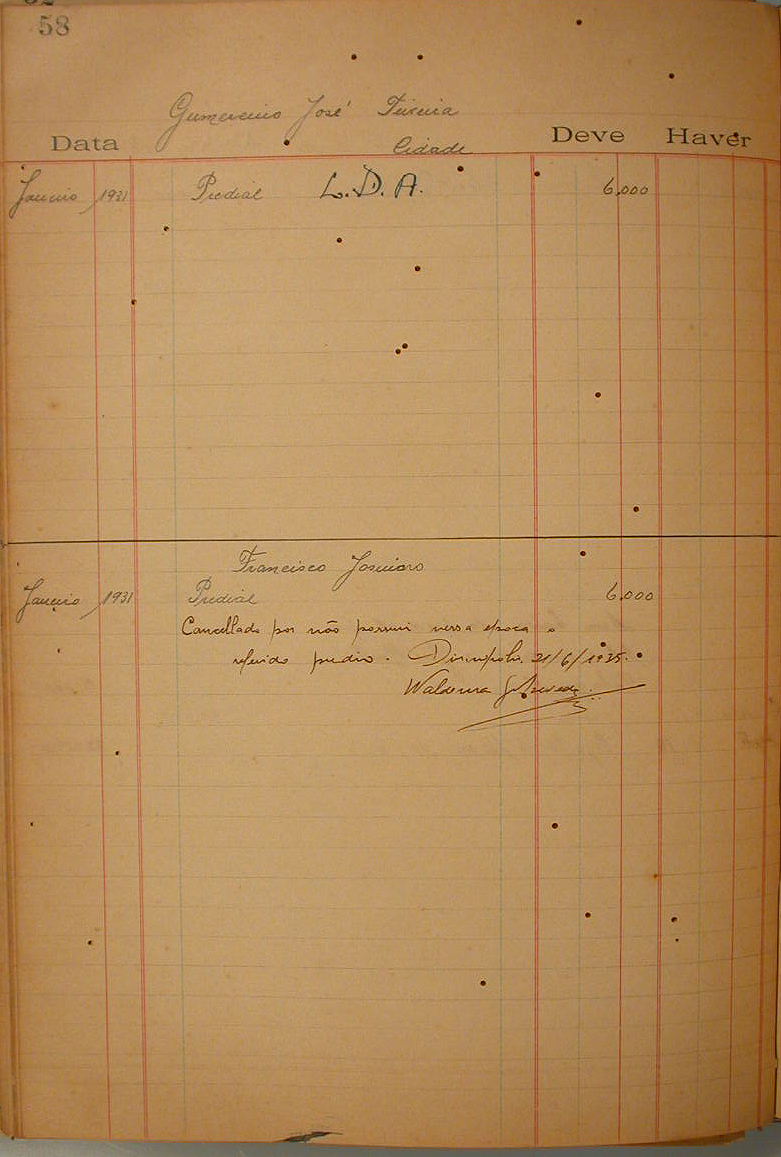 58
José Teixeira
Data Cidade Deve Haver
Janeiro 1931 Predial L. D. A. 6,000
Francisco
Janeiro 1931 Predial 6,000
Cancellado por não possuir nessa epoca o
referido predio. 21/6/1935.